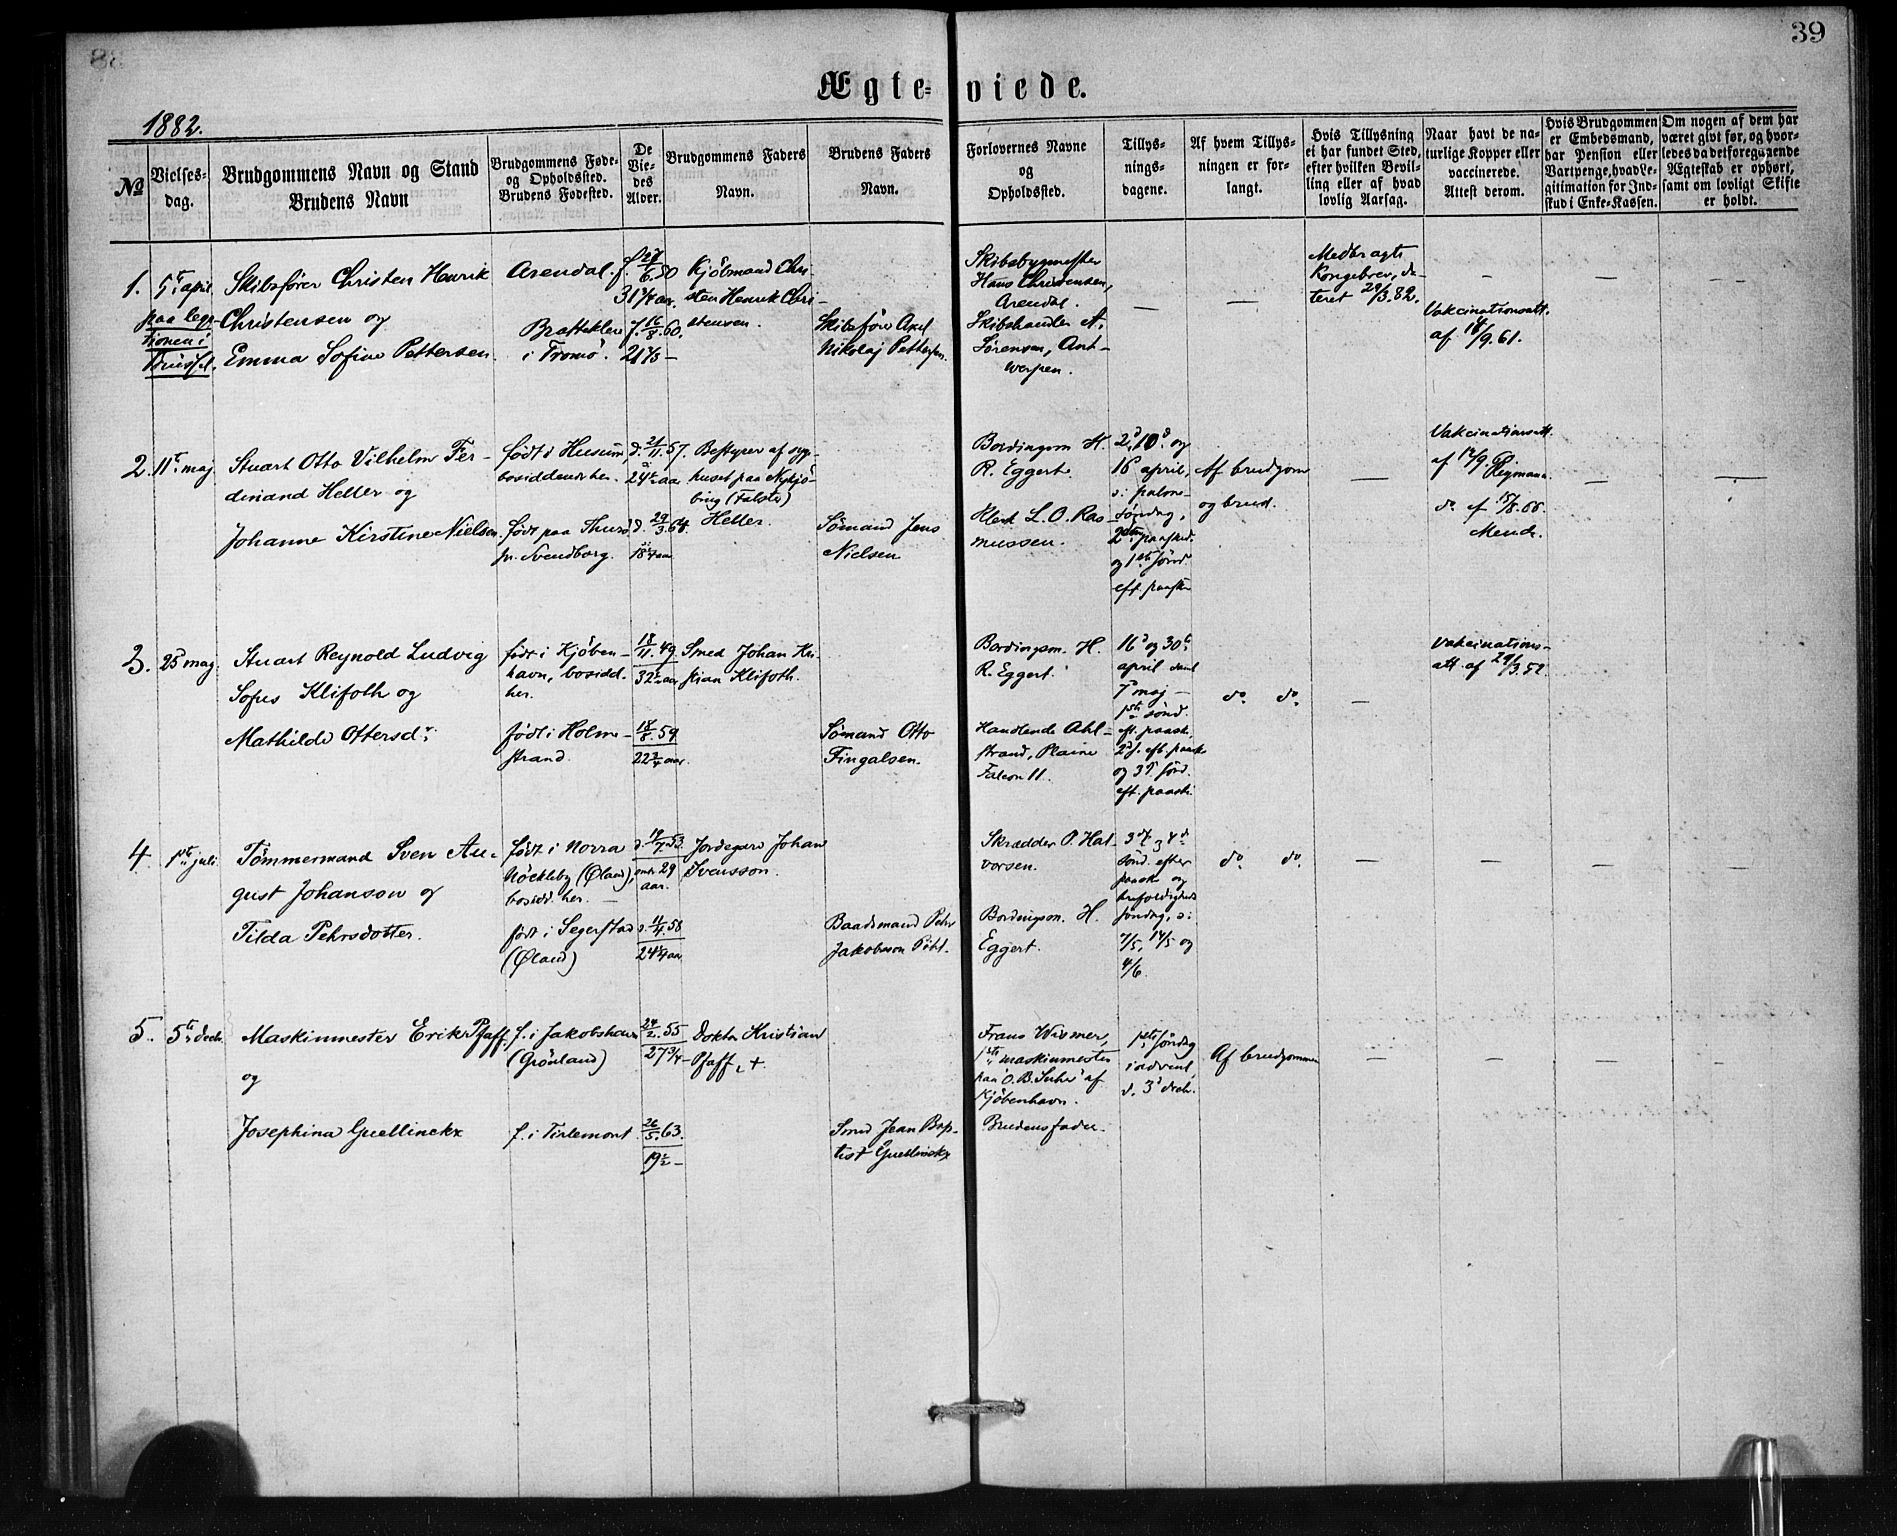 39
Ægte-viede.
1882.
№
Vielses-
dag.
Brudgommens Navn og Stand
Brudens Navn
Brudgommens Føde-
og Opholdssted.
Brudens Fødested.
De
Vie-
des
Alder.
Brudgommens Faders
Navn.
Brudens Faders
Navn.
Forlovernes Navne
og
Opholdssted.
Tillys-
nings-
dagene.
Af hvem Tillys-
ningen er for-
langt.
Hvis Tillysning
ei har fundet Sted,
efter hvilken Bevil-
ling eller af hvad
lovlig Aarsag.
Naar havt de na-
turlige Kopper eller
vaccinerede.
Attest derom.
Hvis Brudgommen
er Embedsmand,
har Pension eller
Vartpenge, hvad Le-
gitimation for Ind-
skud i Enke-Kassen.
Om nogen af dem har
været givt før, og hvor-
ledes da det foregaaende
Ægteskab er ophørt,
samt om lovligt Skifte
er holdt.
1.
5te april
paa lega-
tionen i
Brüssel.
Skibsfører Christen Henrik
Christensen og
Emma Sofine Pettersen
Arendal.
Brattekler
i Tromö.
f. 27/6.50
31 3/4 aar
f. 16/8.60.
21 2/3 –
Kjöbmand Chri-
sten Henrik Chri-
stensen.
Skibsförer Axel
Nikolaj Pettersen.
Skibsbygmester
Hans Christensen,
Arendal.
Skibshandler A.
Sörensen, Ant-
werpen.
—
—
Medbragte
Kongebrev, da-
teret 29/3.82.
–
Vakcinationsatt.
af 18/9.61.
–
–
2.
11te maj
Stuart Otto Vilhelm Fer-
dinand Heller og
Johanne Kirstine Nielsen
födt i Husum,
bosiddende her.
födt paa Thurö
pr. Svendborg.
d. 21/11.57.
24 1/2 aar
d. 29/3.64.
18 1/4 aar
Bestyrer af syge-
huset paa Nykjö-
bing (Falster)
Heller.
Sömand Jens
Nielsen
Bordingsm H.
R. Eggert.
Klerk L. O. Ras-
mussen.
2d, 10d og
16 april,
d: palme-
söndag,
2den paaskd.
og 1ste sönd.
eft. paaske
Af brudgom
og brud.
—
Vakcinationsatt.
af 12/9. Heymann.
do af 15/8.66
Mende.
—
—
3.
25d maj.
Stuart Reynold Ludvig
Sofus Klifoth og
Mathilde Ottersdr.
födt i Kjöben-
havn, bosidd.
her.
födt i Holme-
strand.
18/11.49.
32 1/2 aar
18/8.59
22 3/4 aar.
Smed Johan Kri-
stian Klifoth.
Sömand Otto
Fingalsen.
Bordingsm. H.
R. Eggert.
Handlende Ahl-
strand, Plaine
Falcon 11.
16d og 30te
april samt
7d maj –
1ste sönd.
eft. paaske,
2d s. eft. paaske
og 3d sönd.
eft. paaske.
do do.
–
Vakcinations-
att. af 29/3.52.
4.
1ste juli
Tömmermand Sven Au-
gust Johanson og
Tilda Pehrsdotter.
födt i Norra
Möckleby (Öland),
bosidd. her. –
födt i Segerstad
(Öland)
d. 19/7.53.
omtr. 29
aar.
d. 11/4.58
24 1/4 aar
Jordegare Johan
Svensson.
Baadsmand Pehr
Jakobsson Pihl.
Skrædder O. Hal-
vorsen.
Bordingsm. H.
Eggert.
3dje og 4de
sönd. efter
paaske og
trefoldigheds
söndag, d:
7/5, 14/5 og
4/6.
do do.
—
—
—
—
5.
5te decb.
Maskinmester Erik Pfaff.
og
Josephina Guellinckx
f. i Jakobshavn
(Grönland)
f. i Tirlemont.
24/2.55
27 3/4 –
26/5.63.
19 1/2 –
Doktor Kristian
Pfaff, +
Smed Jean Bap-
tist Guellinckx
Frans Wismer,
1ste maskinmester
paa "O. B. Suhr" af
Kjöbenhavn.
Brudens fader.
1ste söndag
i advent,
d. 3d decb.
Af brudgommen
—
—
—
—